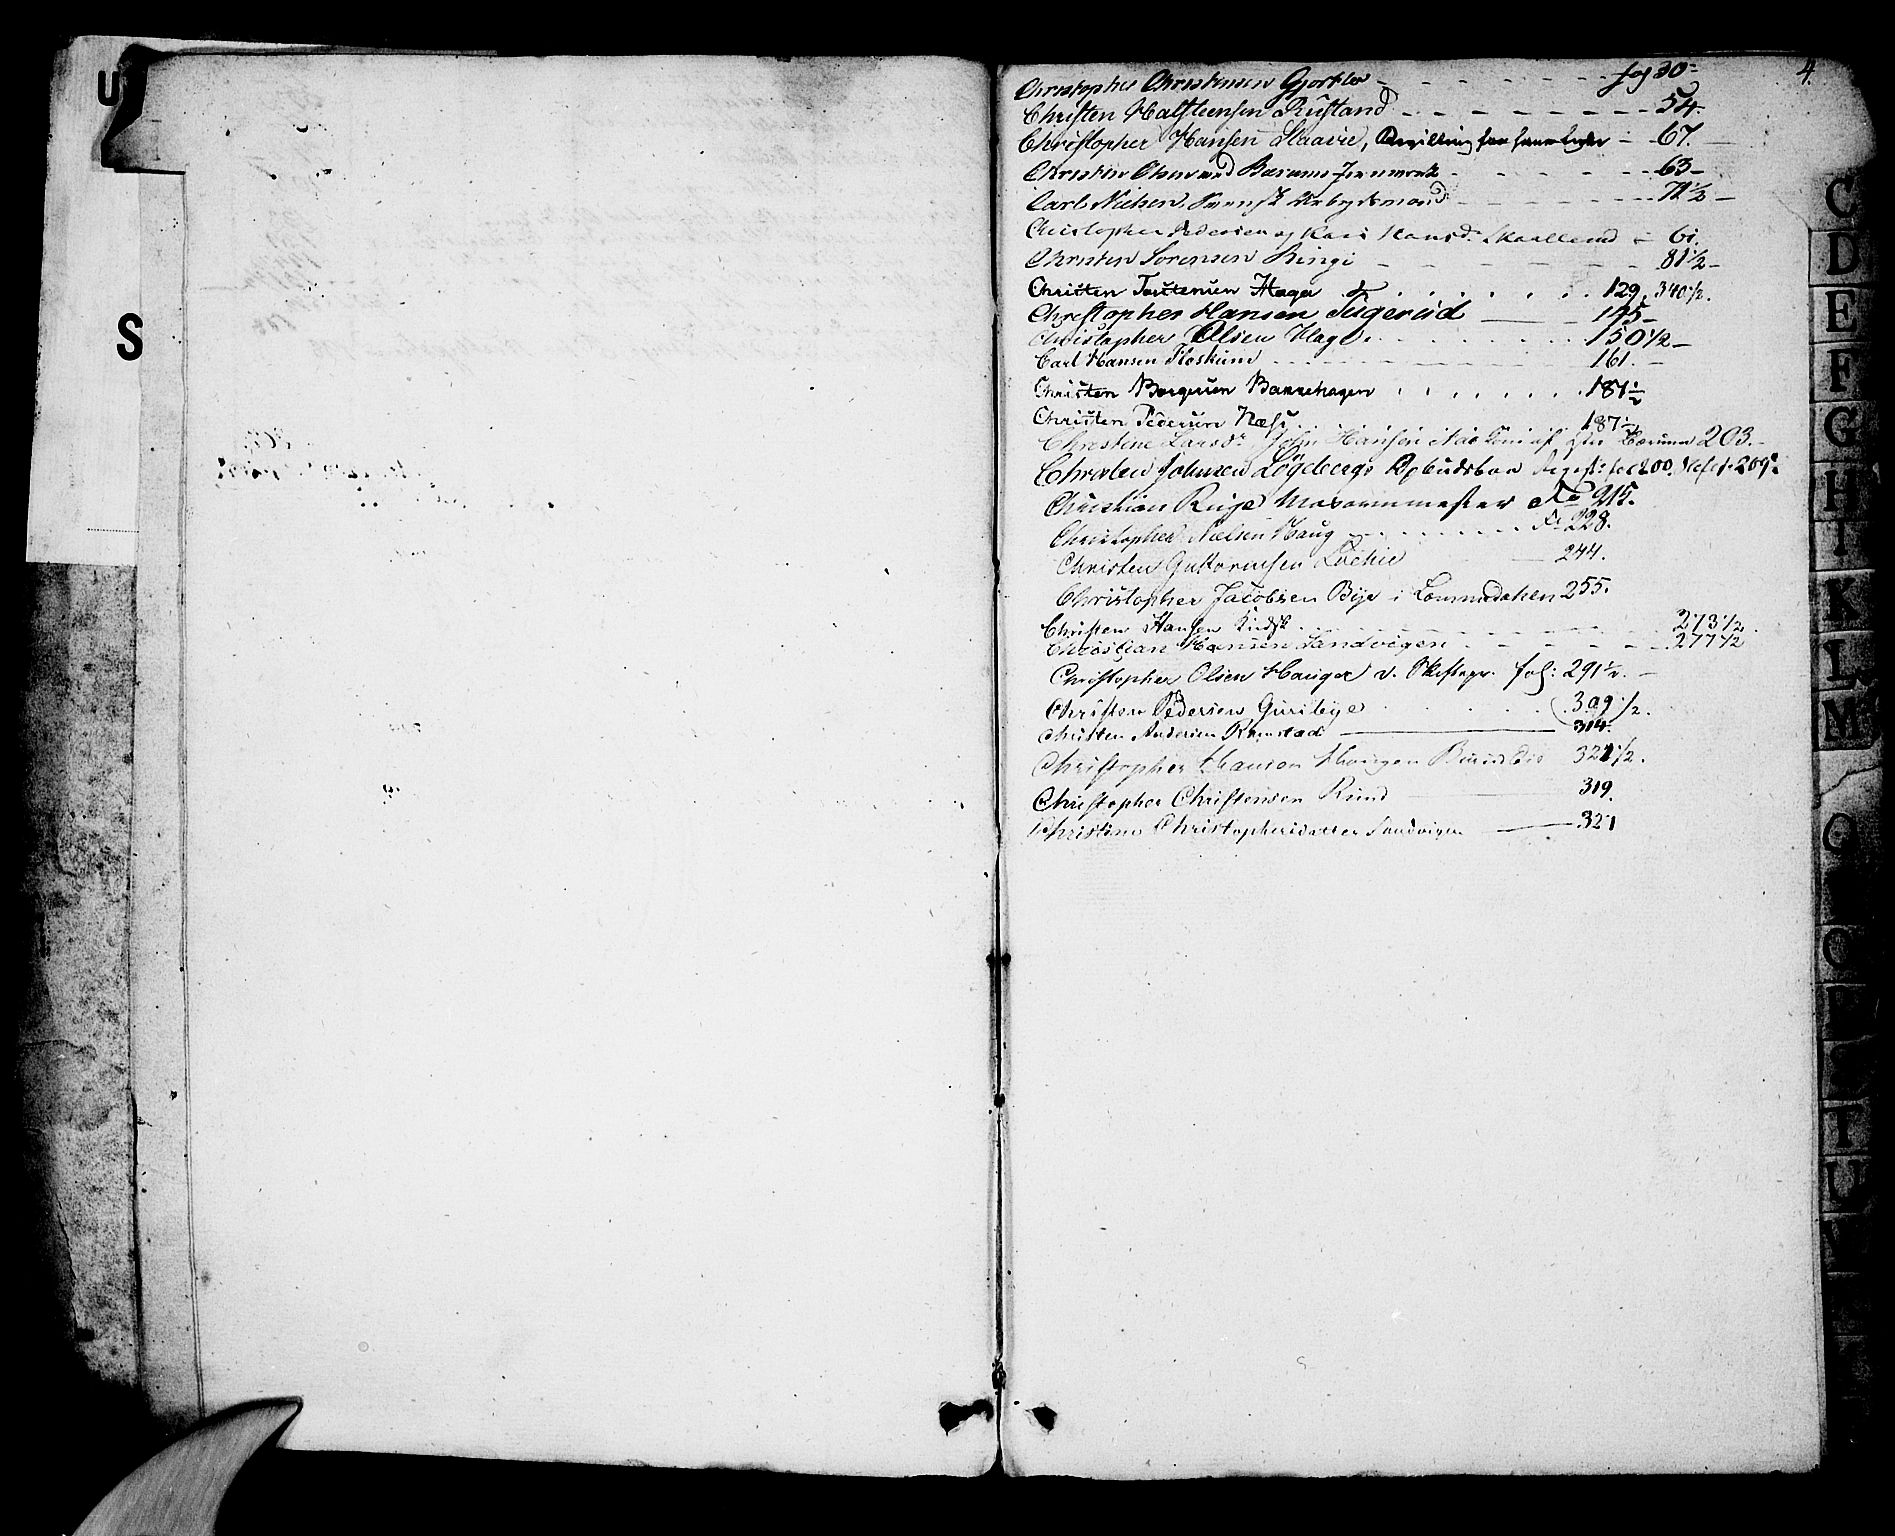 U
S
4.
Christopher Christensen Gjostelo - - - - - fol 30 -
Christen Halsteensen Rustand - - - - - 54.
Christopher Hansen Skaarer, Bevilling - 67.
Christen Bærums Jernværk - - - - 63 -
Carl Nielsen, Svensk Arbeydsmand - - - - 71 1/2 -
Christopher Pedersen og Kari Hansd. - 61.
Christen Sorensen Ringi - - - - 81 1/2 -
Christen Torstensen Hager . . . . . 129, 340 1/2.
Christopher Hansen Tugerud 145 -
Christopher Olsen Hage . . . . . 150 1/2 -
Carl Hansen Floskund - - - - 161. -
Christen Borgersen Bakkehagen . . . . . 187 1/2
Christen Pedersen Næss . . . . . 187 1/2
Christine Larsdr. John Hansen Bærum 203. -
Christen Johnsen Løgebergs Opbudsboe Regist: fol 200. 209.
Christian Ruge Masovnmester No 215.
Christopher Nielsen Haug - - - - - Fo 228.
Christen Guttormsen Løchie 244.
Christopher Jacobsen Bye i Lommedahlen 255.
Christen Hansen - - - - 273 1/2
Christian Hansen Sandvigen - - - - 277 1/2
Christopher Olsen Hauger v. Skiftepr. fol: 291 1/2. -
Christen Pedersen Guribye . . . . . 309 1/2.
Christen Andersen Ramstad 314.
Christopher Hansen Hougen 321 1/2.
Christopher Christensen Rund 319.
Christine Christophersdatter Sandvigen 321
C
D
E
F
G
H
I
K
L
M
O
T
U